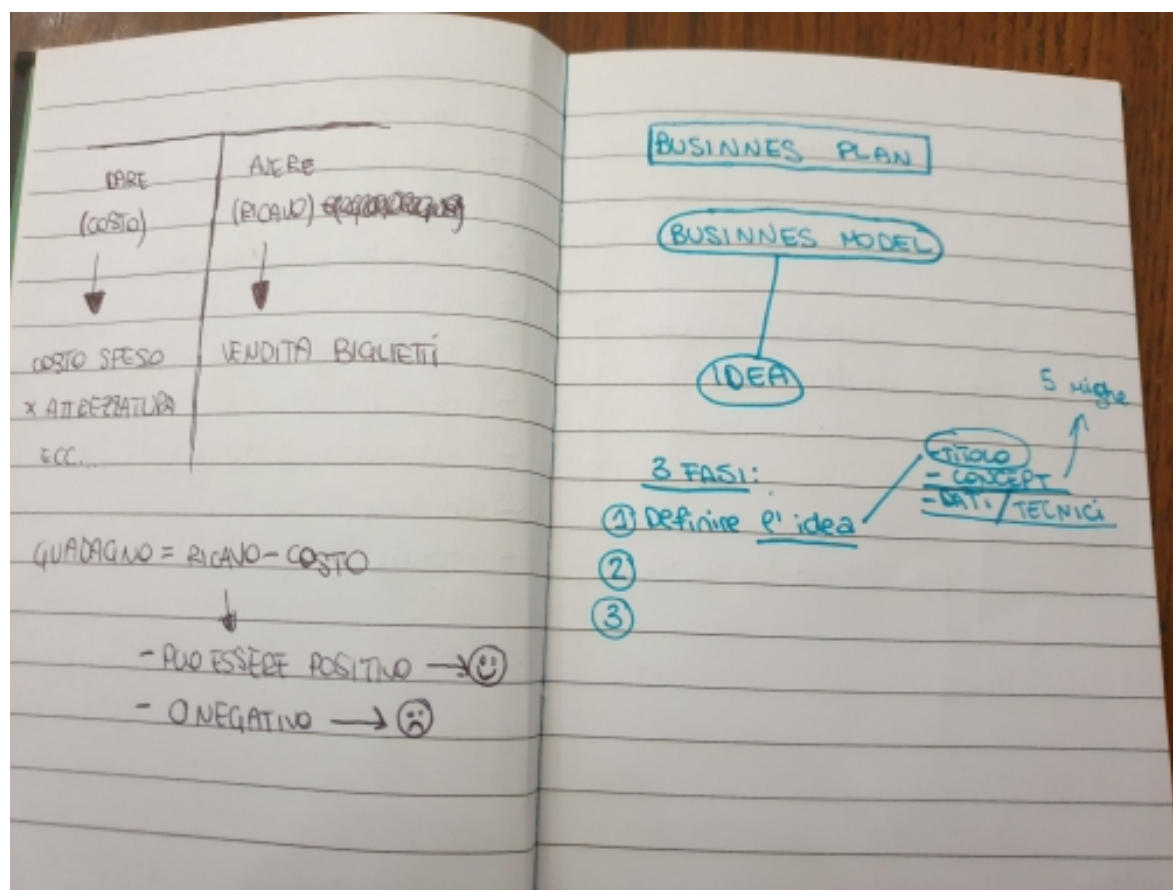 DARE
(COSTO)
COSTO SPESO
X ATTREZZATURA
ECC...
AVERE
(RICAVO)
VENDITA BIGLIETTI
GUADAGNO = RICAVO - COSTO
- PUO ESSERE POSITIVO →
- O NEGATIVO →
BUSINNES PLAN
BUSINNES MODEL
IDEA
3 FASI:
① Definire l'idea
- TITOLO
- CONCEPT
- DATI / TECNICI
5 righe
②
③